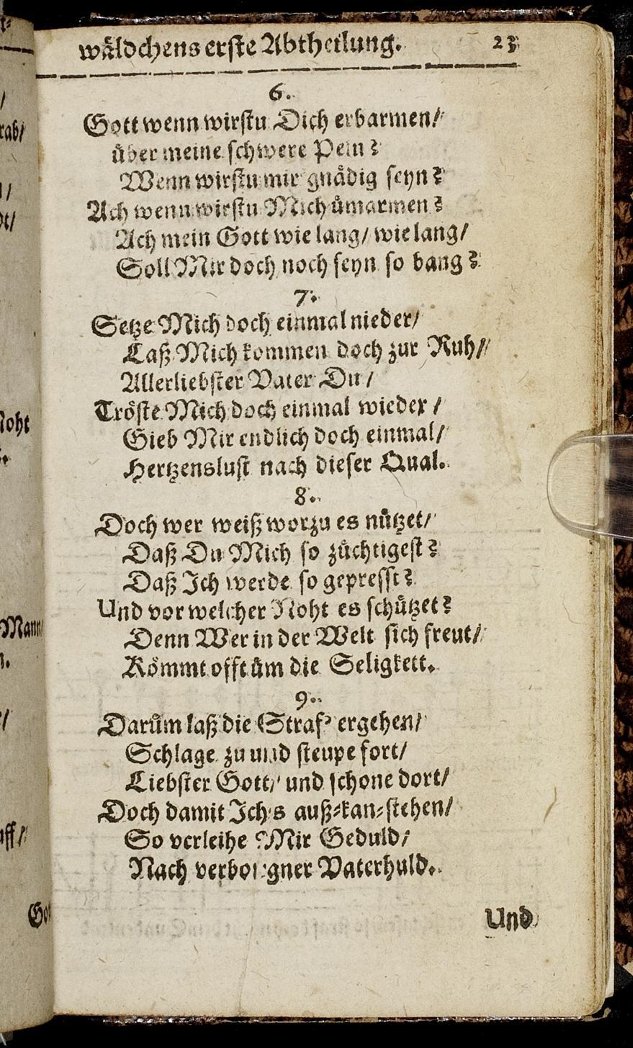 wäldchens erste Abtheilung. 23
6.
Gott wenn wirstu Dich erbarmen/
über meine schwere Pein?
Wenn wirstu mir gnädig seyn?
Ach wenn wirstu Mich ümarmen?
Ach mein Gott wie lang/ wie lang/
Soll Mir doch noch seyn so bang?
7.
Setze Mich doch einmal nieder/
Laß Mich kommen doch zur Ruh/
Allerliebster Vater Du/
Tröste Mich doch einmal wieder/
Gieb Mir endlich doch einmal/
Hertzenslust nach dieser Qual.
8.
Doch wer weiß worzu es nützet/
Daß Du Mich so züchtigest?
Daß Ich werde so gepresst?
Und vor welcher Noht es schützet?
Denn Wer in der Welt sich freut/
Kömmt offt üm die Seligkeit.
9.
Darüm laß die Straf' ergehen/
Schlage zu und steupe fort/
Liebster Gott/ und schone dort/
Doch damit Ich's auß-kan-stehen/
So verleihe Mir Geduld/
Nach verborgner Vaterhuld.
Und